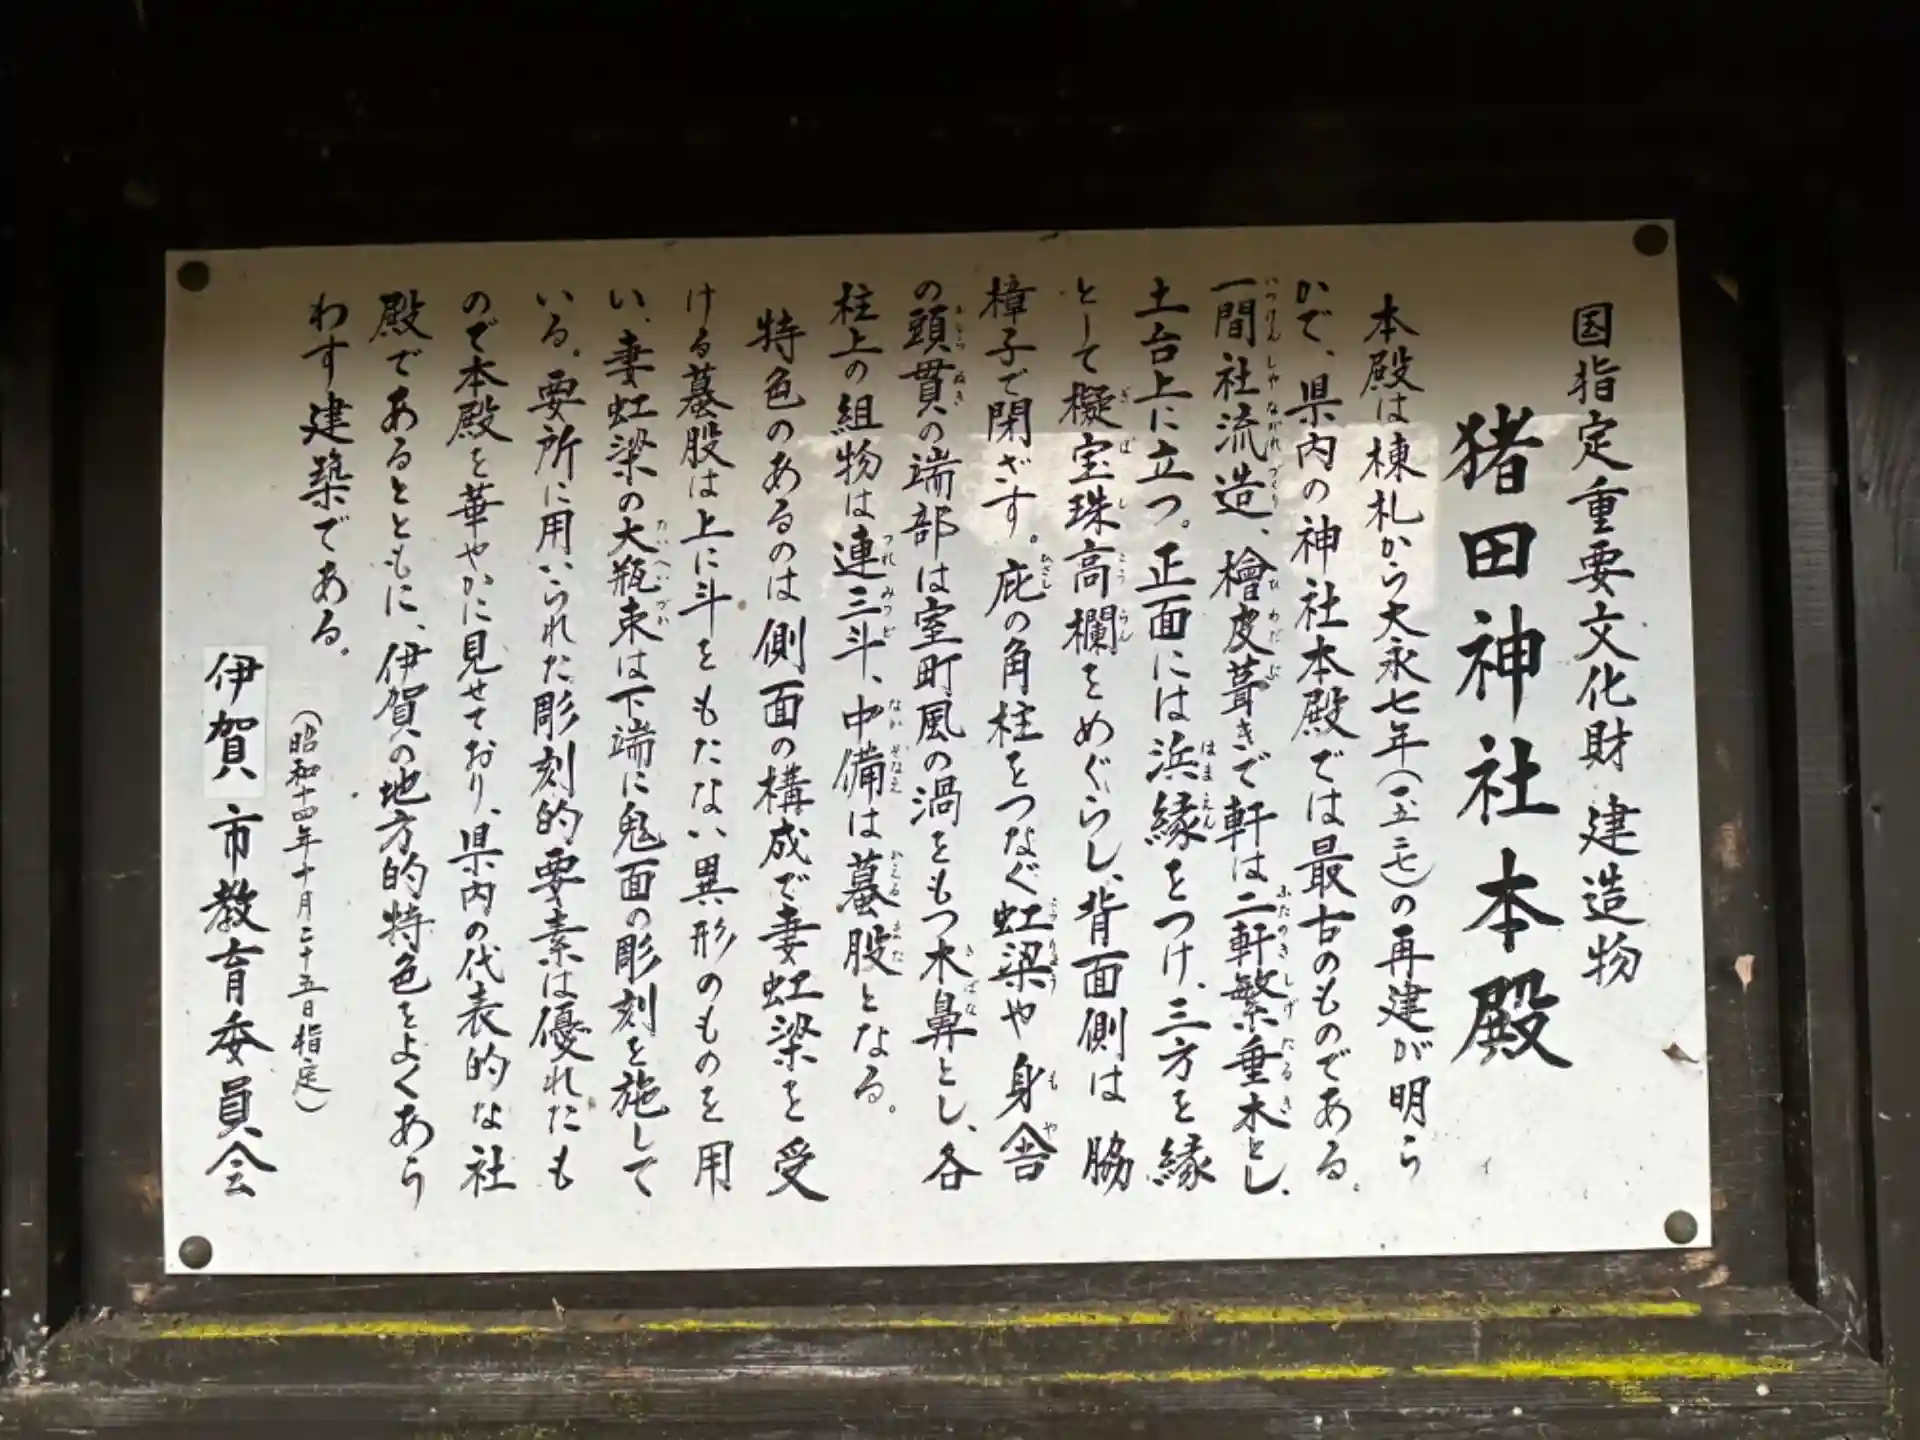 国指定重要文化財 建造物
猪田神社本殿
本殿は棟札から大永七年(一五二七)の再建が明ら
かで、県内の神社本殿では最古のものである。
一間社流造、檜皮葺きで軒は二軒繁垂木とし、
土台上に立つ。正面には浜縁をつけ、三方を縁
として擬宝珠高欄をめぐらし、背面側は脇
樟子で閉ざす。庇の角柱をつなぐ虹梁や身舎
の頭貫の端部は室町風の渦をもつ木鼻とし、各
柱上の組物は連三斗、中備は蟇股となる。
特色のあるのは側面の構成で妻虹梁を受
ける蟇股は上に斗をもたない異形のものを用
い、妻虹梁の大瓶束は下端に鬼面の彫刻を施して
いる。要所に用いられた彫刻的要素は優れたも
ので本殿を華やかに見せており、県内の代表的な社
殿であるとともに、伊賀の地方的特色をよくあら
わす建築である。
(昭和十四年十月二十五日指定)
伊賀市教育委員会